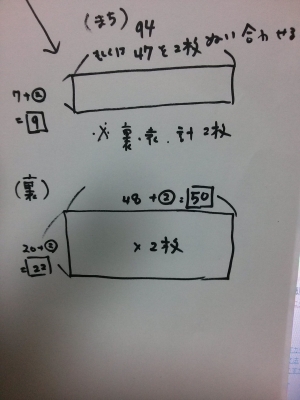 (まち) 94
もしくは 47を2枚 ぬい合わせる
7+②
=9
・X・裏・表・計2枚
(裏)
48+②=50
20+②
=22
×2枚